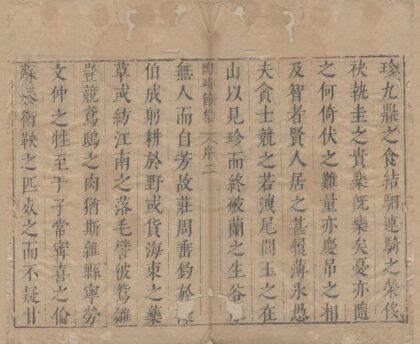 珍九鼎之食結駟連騎之榮侈
袂執圭之貴樂既樂矣憂亦隨
之何倚伏之難量亦慶弔之相
及智者賢人居之甚履薄氷愚
夫貪士競之若洩尾閭玉之在
山以見珍而終破蘭之生谷
陶靖節集 序 二
無人而自芳故莊周垂釣於
伯成躬耕於野或貨海東之藥
草或紡江南之落毛譬彼鴛雛
豈競鳶鴟之肉猶斯雜縣寧勞
文仲之牲至于子常甯喜之倫
蘇秦衛鞅之匹死之而不疑甘